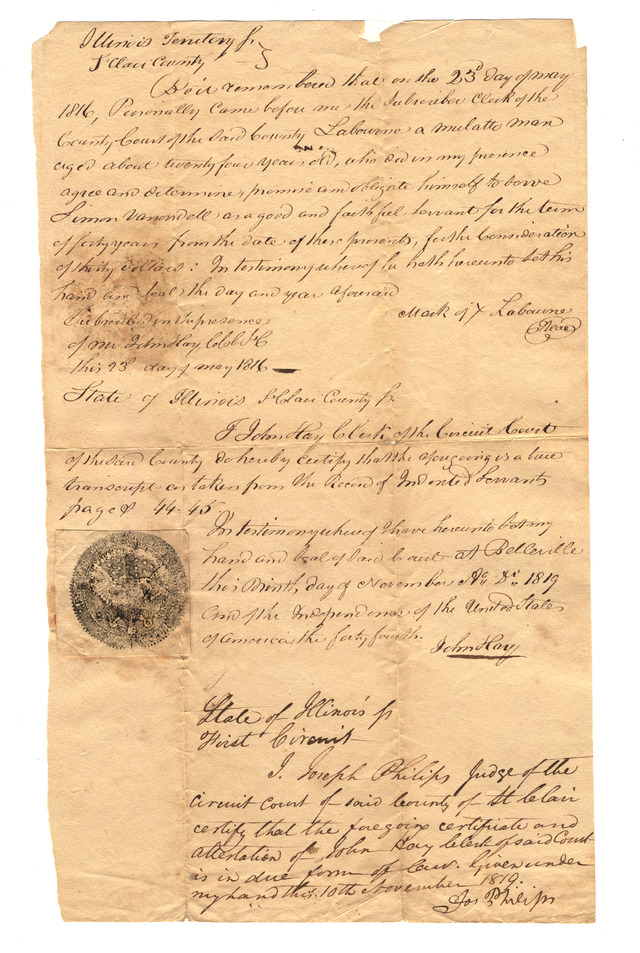 Illinois Territory ss.
St Clair County }
Be it remembered that on the 23d day of may
1816, Personally came before me the Subscriber Clerk of the
County Court of the said County Labourne a mulatto man
aged about twenty four years old, who did in my presence
agree and determine, promise and obligate himself to serve
Simon Vanorsdell as a good and faithful servant for the term
of forty years from the date of these presents, for the Consideration
of thirty dollars: In testimony whereof he hath hereunto set his
hand and seal the day and year aforesaid
Mark of X Labourne
Seal
Subscribed in the presence
of me John Hay, C C C St C
this 23d day of may 1816
State of Illinois St Clair County ss.
I John Hay Clerk of the Circuit Court
of the said County do hereby certify that the aforegoing is a true
transcript as taken from the Record of Indented Servants
pages 44-45
In testimony whereof I have hereunto set my
hand and seal of said Court at Belleville
this Ninth day of November Ao Di 1819
and of the Independence of the United States
of America the forty fourth.
John Hay
State of Illinois ss
First Circuit
I. Joseph Philips Judge of the
circuit court of said County of St Clair
certify that the foregoing certificate and
attestation of John Hay Clerk of said Court
is in due form of law. Given under
my hand this 10th November 1819.
Jos Philips